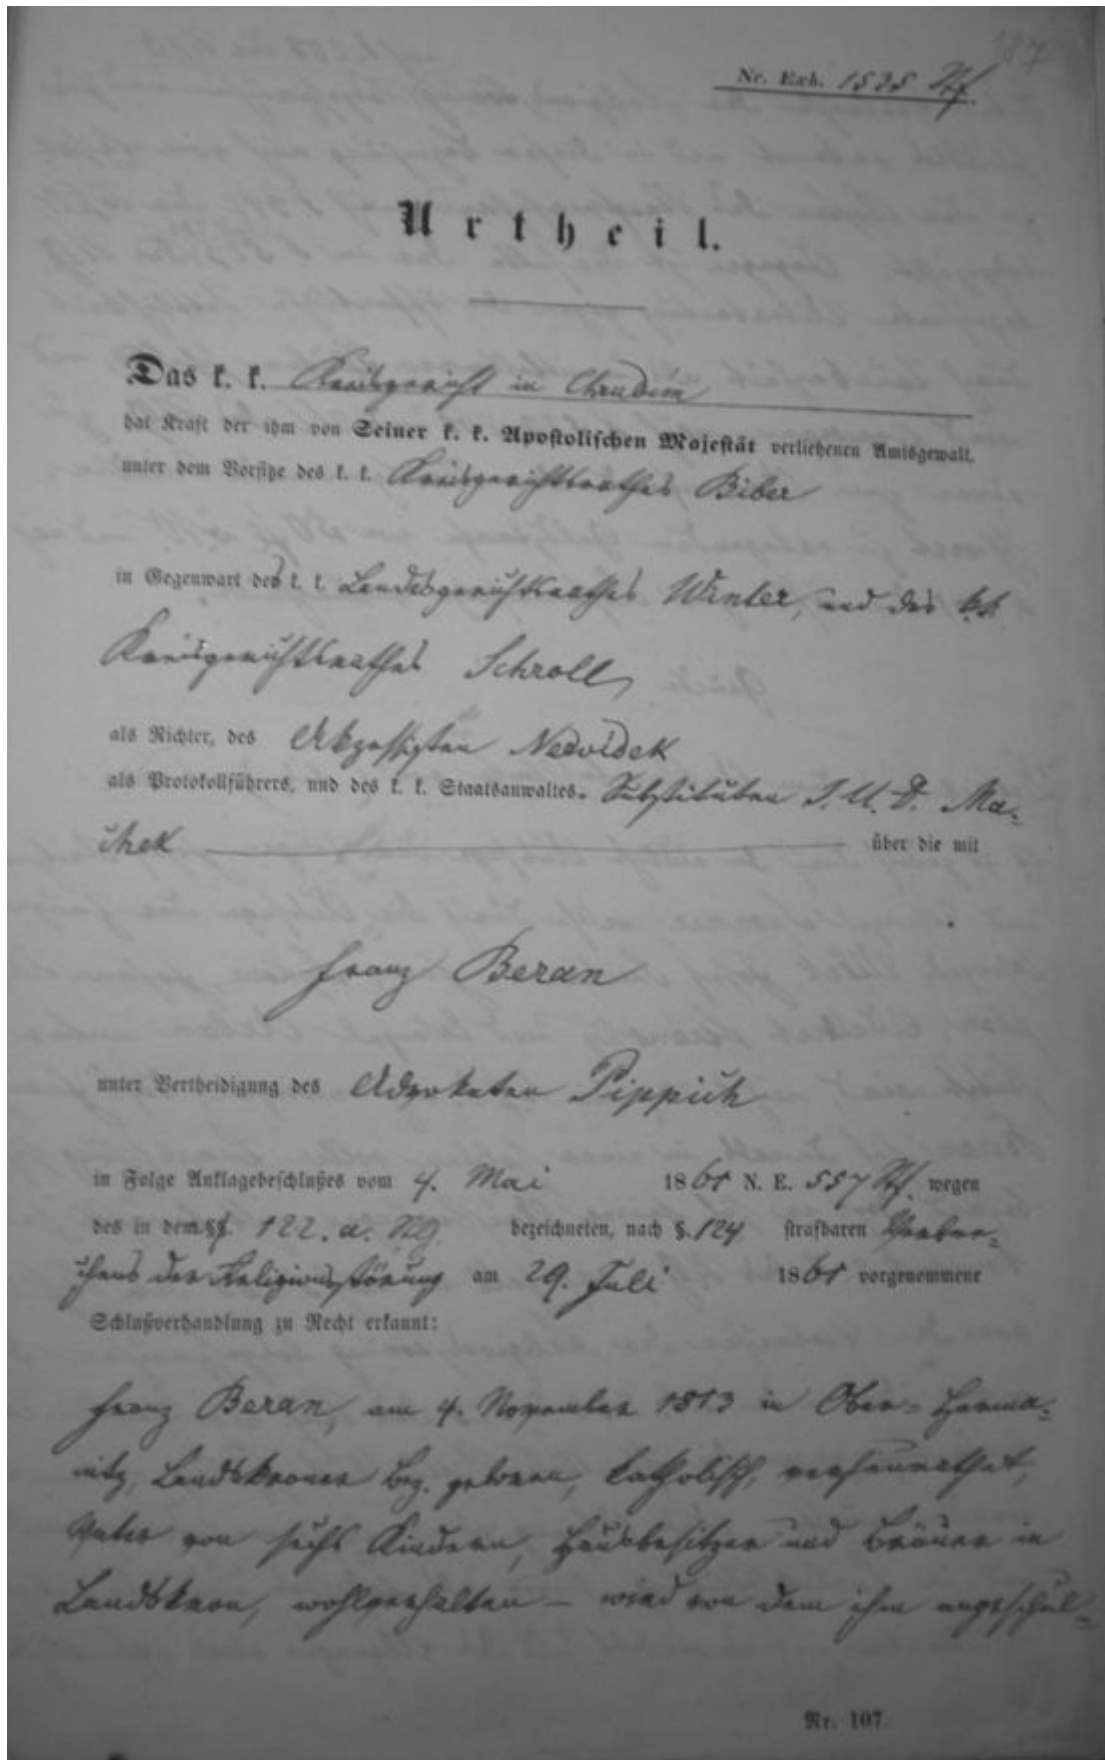 187
Nr. Exh. 1525
Urtheil.
Das k. k. Kreisgericht in Chrudim
hat Kraft der ihm von Seiner k. k. Apostolischen Majestät verliehenen Amtsgewalt,
unter dem Vorsitze des k. k. Kreisgerichtsrathes Biber
in Gegenwart des k. k. Landesgerichtsrathes Winter, und des k.k.
Kreisgerichtsrathes Schroll,
als Richter, des Akzessisten Nedvidek
als Protokollführers, und des k. k. Staatsanwaltes- Substituten J. U. D. Ma-
chek über die mit
Franz Beran
unter Vertheidigung des Advokaten Pippich
in Folge Anklagebeschlußes vom 4. Mai 1861 N. E. 557 wegen
des in dem § 122. a. StG bezeichneten, nach §. 124 strafbaren Verbre-
chens der Religionsstörung am 29. Juli 1861 vorgenommene
Schlußverhandlung zu Recht erkannt:
Franz Beran, am 4. November 1813 in Ober-Herma-
nitz, Landskroner Bez. geboren, katholisch, verheurathet,
Vater von sechs Kindern, Hausbesitzer und Bräuer in
Landskron, wohlverhalten – wird von dem ihm angeschul-
Nr. 107.